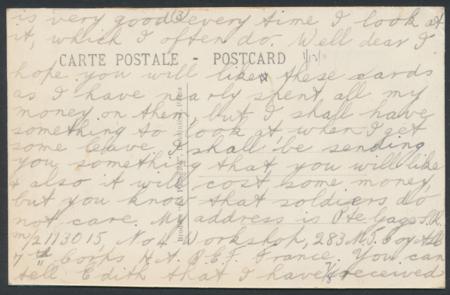 is very good (3) every time I look at
it, which I often do. Well dear I
CARTE POSTALE - POSTCARD
hope you will like these cards
as I have nearly spent all my
money on them, but I shall have
something to look at when I get
some leave. I shall be sending
you something that you will like
& also it will cost some money,
but you know that soldiers do
not care. My address is Pte
No 4 Workshop, 283 M.T. Coy
7th Corps H.A. B.E.F. France. You can
tell Edith that I have received